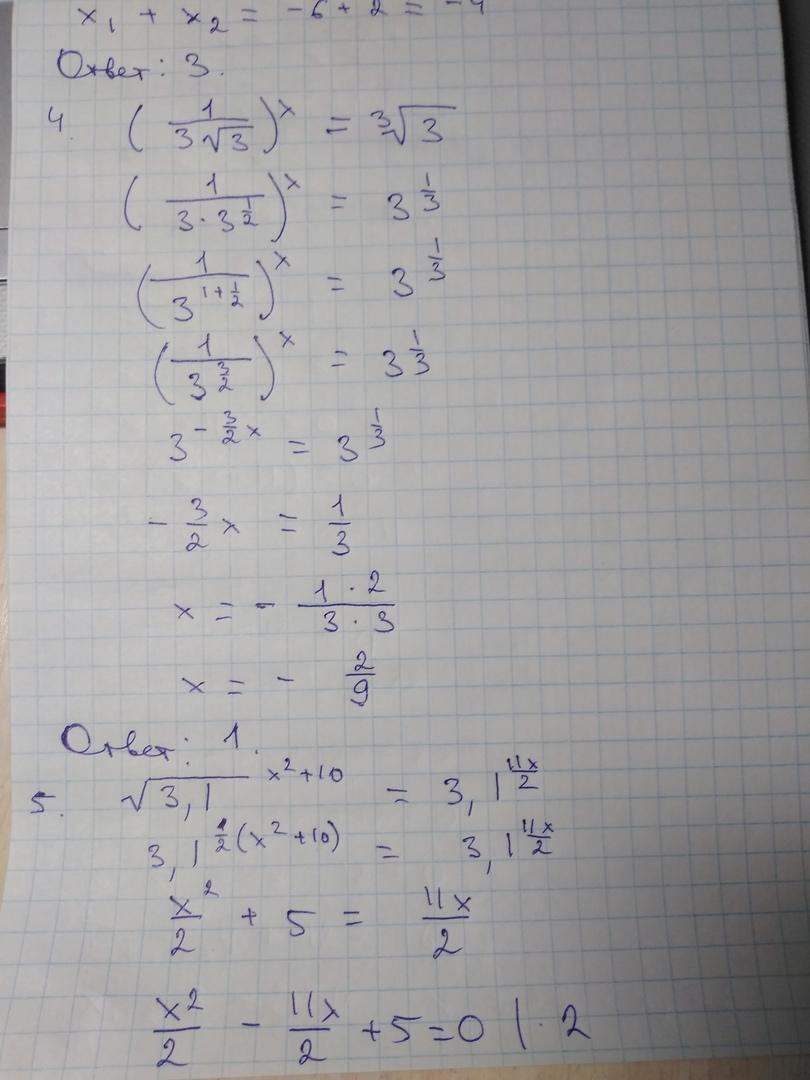 x₁ + x₂ = -6 + 2 = -4
Ответ: 3.
4. (1/(3√3))^x = ∛3
(1/(3·3^(1/2)))^x = 3^(1/3)
(1/(3^(1+1/2)))^x = 3^(1/3)
(1/(3^(3/2)))^x = 3^(1/3)
3^(-3/2 x) = 3^(1/3)
-3/2 x = 1/3
x = - (1·2)/(3·3)
x = - 2/9
Ответ: 1.
5. √3,1^(x²+10) = 3,1^(11x/2)
3,1^(1/2(x²+10)) = 3,1^(11x/2)
x²/2 + 5 = 11x/2
x²/2 - 11x/2 + 5 = 0 |·2